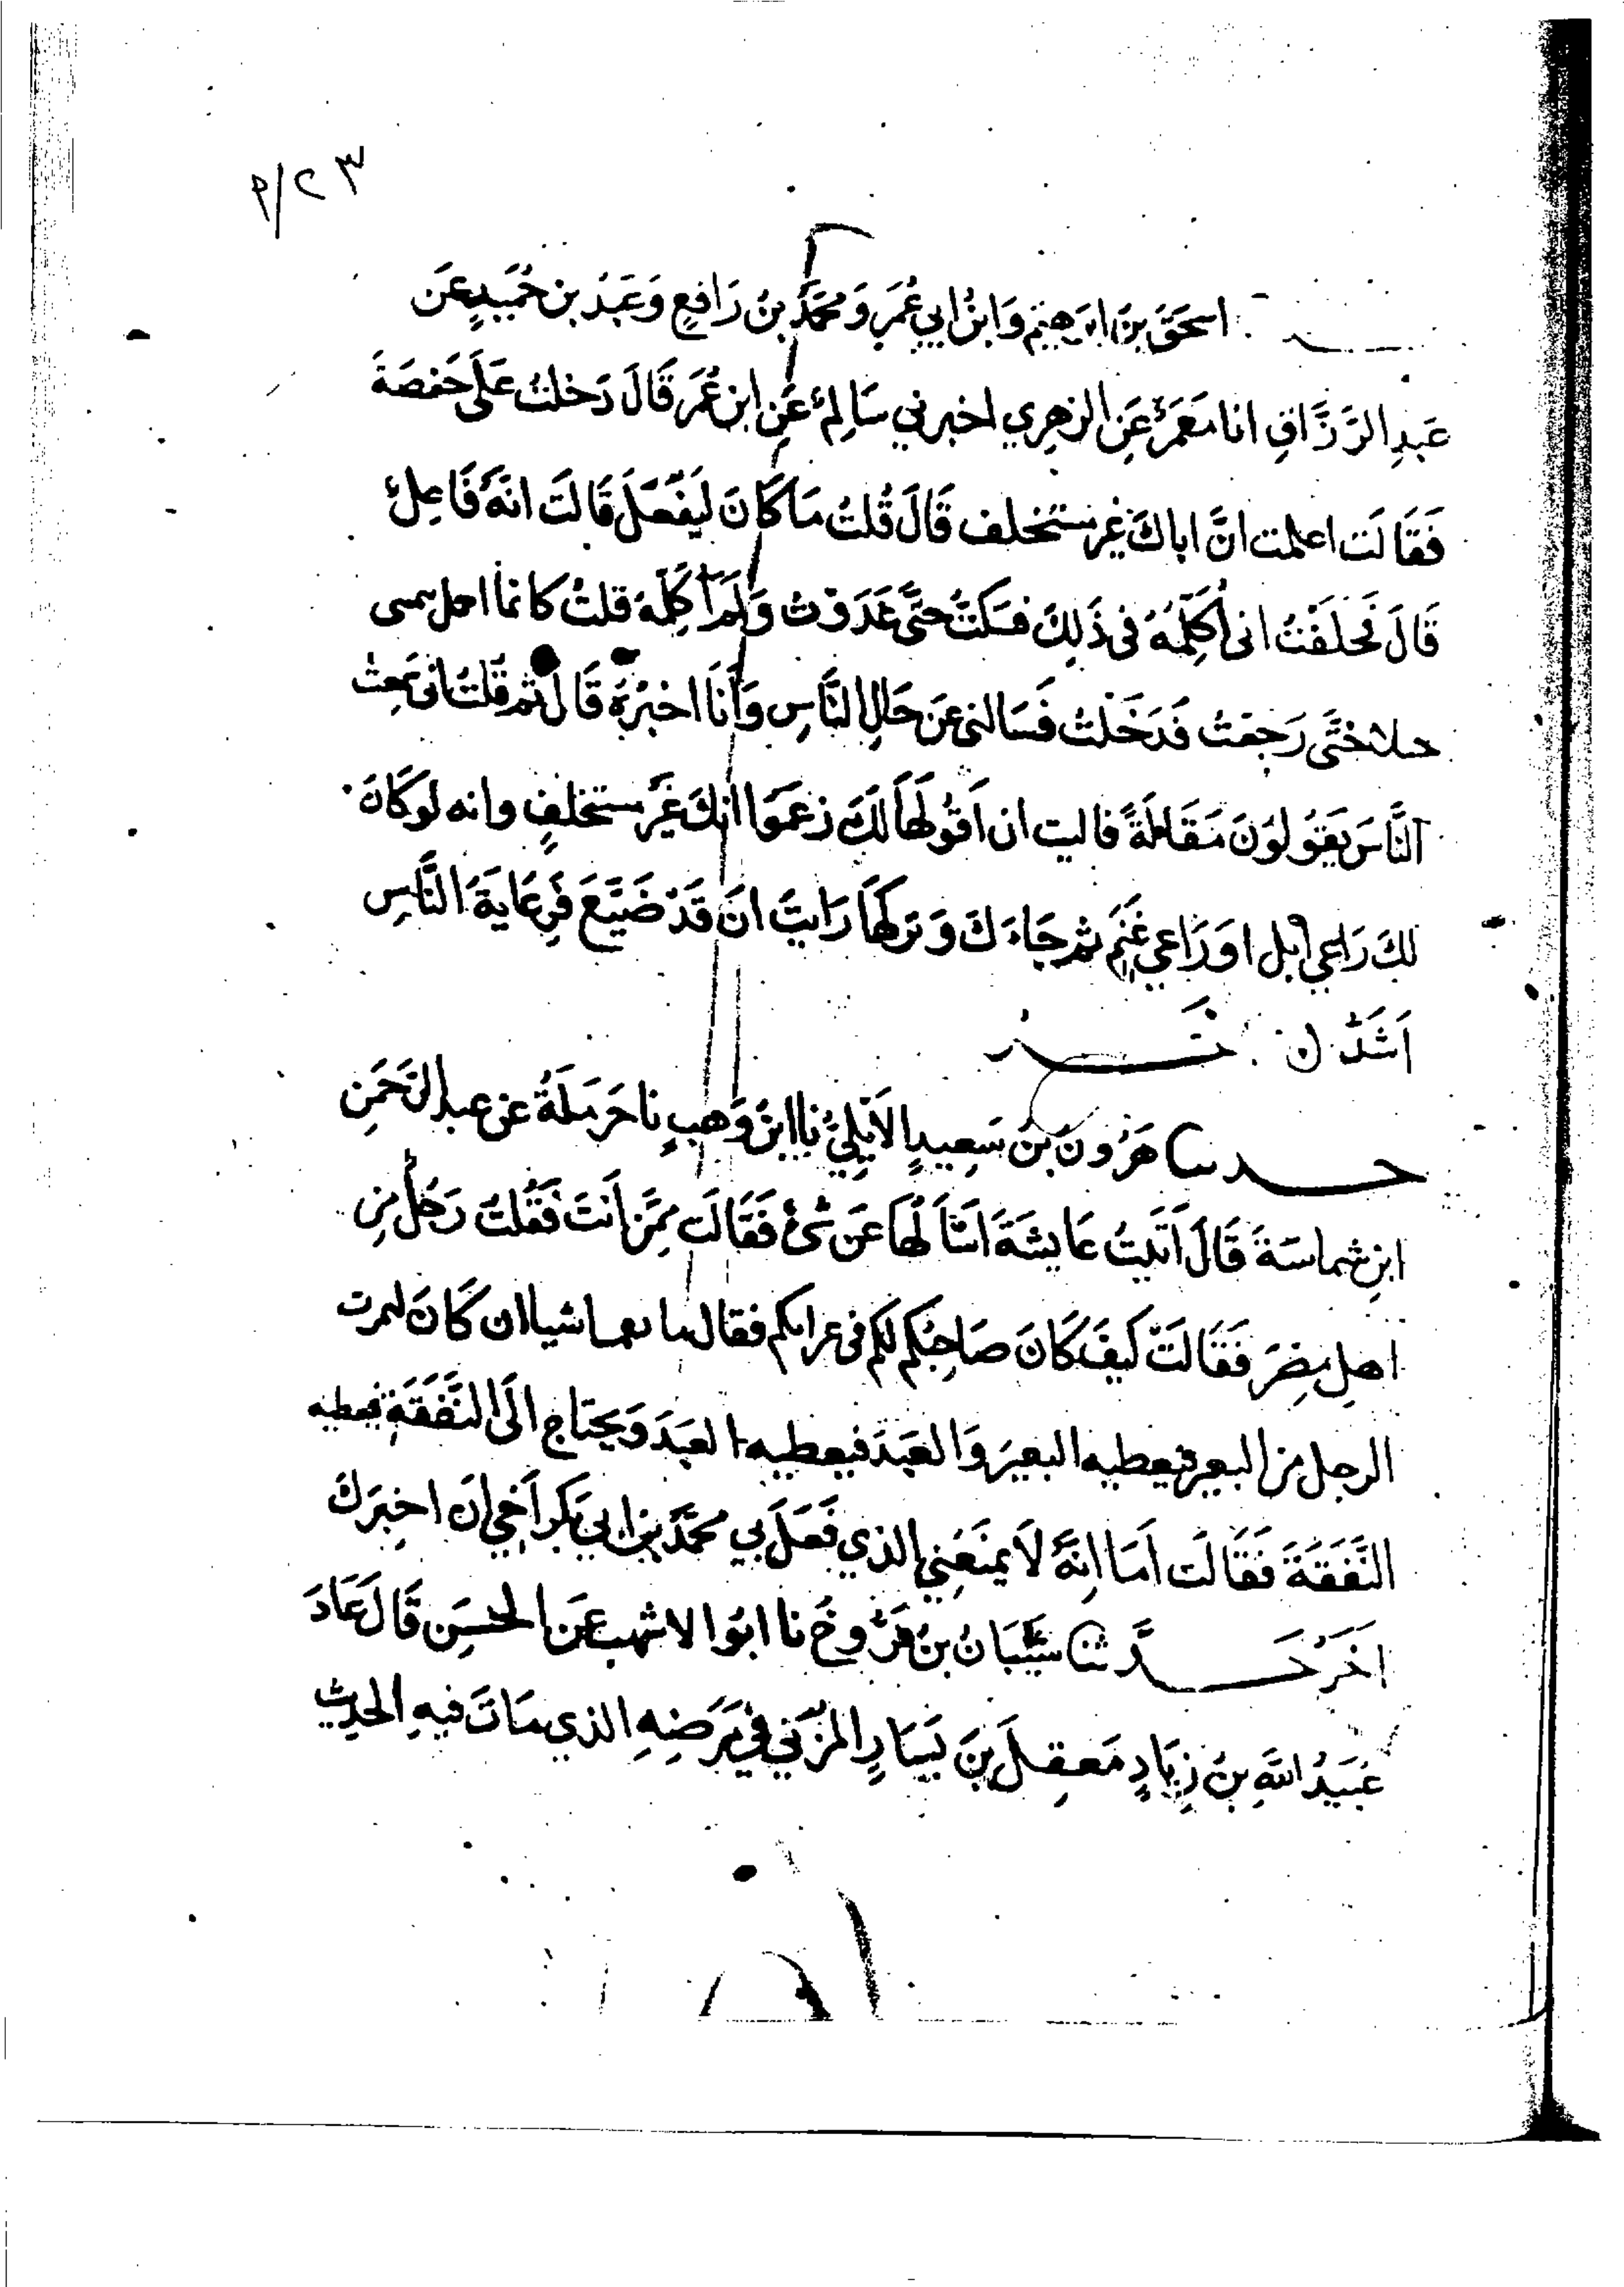 ٢٣/٩
اسحَقَ بنُ ابرَهِيم وَابنُ ابي عُمَر وَمحمَّدُ بنُ رَافِعٍ وَعَبدُ بن حُمَيدٍ عَن
عَبدِ الرَّزَّاقِ انا مَعمَرٌ عَنِ الزهرِي اخبرني سَالِمٌ عَنِ ابنِ عُمَرَ قَالَ دَخَلتُ عَلَى حَفصَةَ
فَقَالَت اعلمت انَّ اباكَ غير مستخلف قَالَ قُلتُ مَا كَانَ لِيَفعَلَ قَالَت انَّهُ فَاعِلٌ
قَالَ فَحَلَفتُ انى أُكَلِّمُهُ فى ذَلِكَ فسَكَتُّ حتَّى غَدَوتُ وَلَم أُكَلِّمهُ قلتُ كانما احمل بيميني
حتى رَجَعتُ فَدَخَلتُ فَسَالنى عَن حَالِ النَّاسِ وَأَنَا اخبِرُهُ قَالَ ثم قلتُ انى سمعت
النَّاسَ يَقُولُونَ مَقَالَةً فاليت ان اَقُولَهَا لَكَ زعَمُوا انكَ غَيرُ مستخلفٍ وانه لوكَانَ
لكَ رَاعِي ابل اورَاعي غَنَمٍ ثم جَاءَكَ وَتركهَا رَايتَ ان قَد ضَيَّعَ فَرِعَايَةُ النَّاسِ
اَشَدُّ
حدثنا هَرُونُ بنُ سَعِيدٍ الاَيلِيُّ نا ابنُ وَهبٍ نا حَرمَلَةُ عن عبدالرَّحمَنِ
ابنِ شماسَةَ قَالَ أَتَيتُ عَايشَةَ اَسْاَلُهَا عَن شَىْءٍ فَقَالَت مِمَّن أَنتَ فَقُلتُ رَجُلٌ مِن
اهلِ مِصرَ فَقَالَتْ كَيفَ كَانَ صَاحِبُكم لكم فى غزاتكم فقال ما نقمنا شيا ان كَانَ ليموت
الرجل من البعير فيعطيه البعيرَ وَالعَبدَ فيعطيه العَبدَ وَيحتَاج الَى النَّفَقَةِ فيعطيه
النَّفَقَةَ فَقَالَت اَمَا انَّهُ لاَ يمنَعُنِي الذي فَعَلَ بي محمَّدِ بنِ ابي بَكرٍ أَخِي ان اخبِرَكَ
اخَرُ حَدَّثنا شَيبَانُ بنُ فَرُّوخَ نا ابُوالاشهب عَن الحَسَنِ قَالَ عَادَ
عُبَيدُاللهِ بنُ زِيَادٍ مَعقِلَ بنَ يَسَارِ المُزَنيَّ في مَرَضِهِ الذي مَاتَ فيهِ الحديث